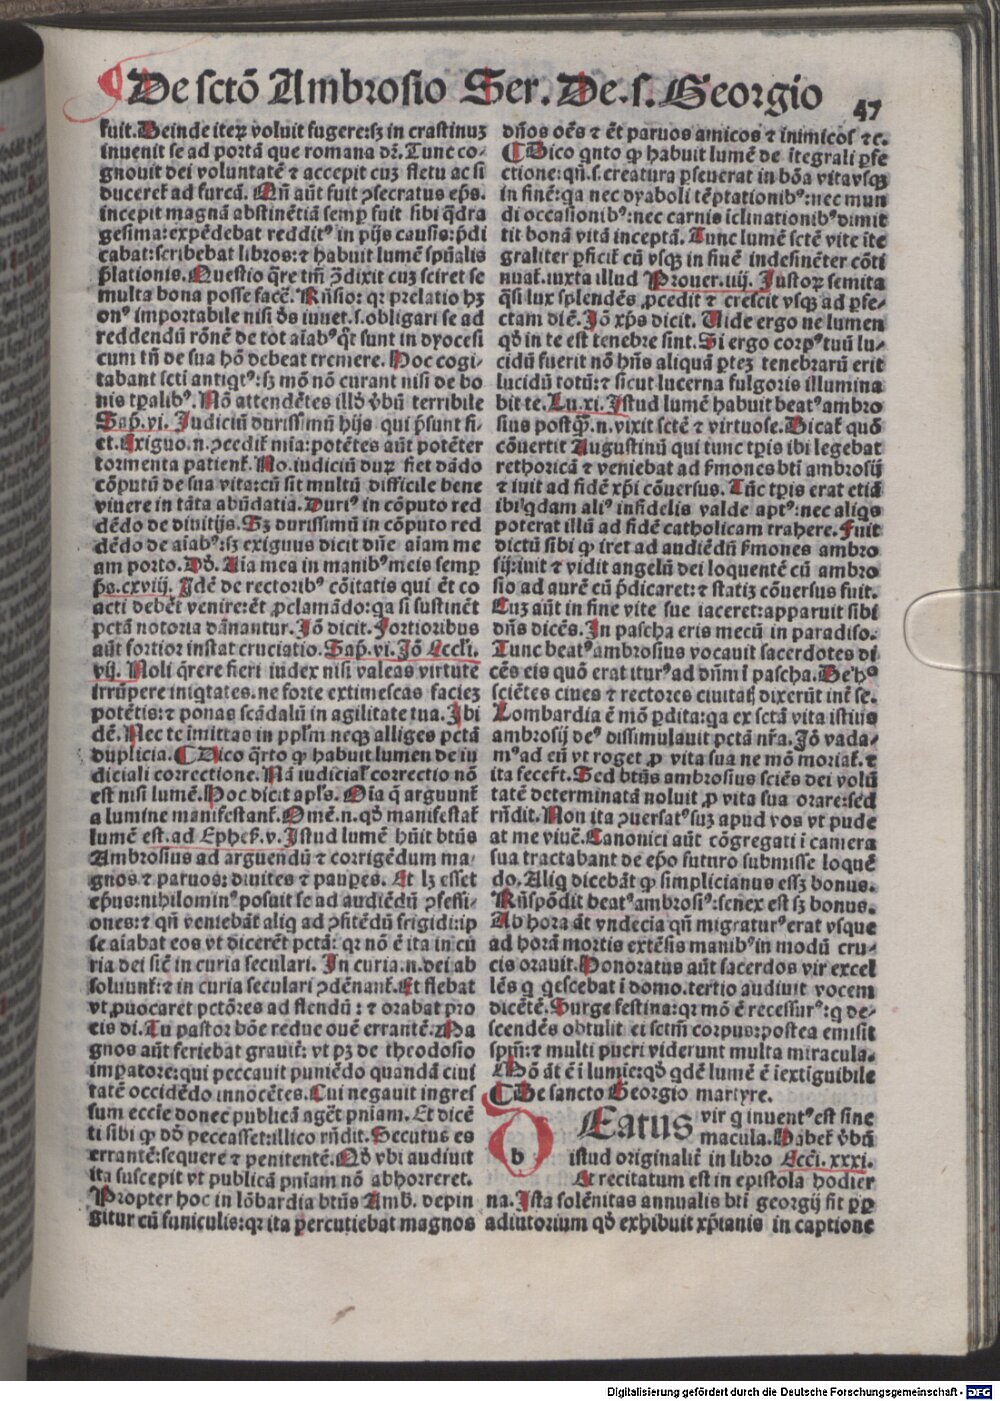 De sctō Ambrosio Ser. De .s. Georgio
47
fuit. Deinde iteꝝ voluit fugere: sꝫ in crastinuꝫ
inuenit se ad portā que romana dr̄. Tunc co-
gnouit dei voluntatē ⁊ accepit cuꝫ fletu ac si
duceret̉ ad furcā. Qn̄ aūt fuit ꝯsecratus ep̄s.
incepit magnā abstinētiā semꝑ fuit sibi q̄dra
gesima: expēdebat reddit⁹ in pijs causis: p̄di
cabat: scribebat libros: ⁊ habuit lumē spūalis
p̄lationis. Questio q̄re tm̄ ꝯdixit cuꝫ sciret se
multa bona posse facē. Rn̄sio: qꝛ prelatio hꝫ
on⁹ importabile nisi d̄s iuuet .s. obligari se ad
reddendū rōnē de tot aīab⁹ q̄t sunt in dyocesi
cum tn̄ de sua hō debeat tremere. Hoc cogi-
tabant scti antiqt⁹: sꝫ mō nō curant nisi de bo
nis tꝑalib⁹. Nō attendētes illd̄ v̄bū terribile
Sap̄. vi. Iudiciū durissimū hijs qui p̄sunt fi-
et. Exiguo .n. ꝯcedit̉ mīa: potētes aūt potēter
tormenta patient̉. No. iudiciū duꝝ fiet dādo
cōputū de sua vita: cū sit multū difficile bene
viuere in tāta abūdatia. Duri⁹ in cōputo red
dēdo de diuitijs. Sꝫ durissimū in cōputo red
dēdo de aīab⁹: sꝫ exiguus dicit dn̄e aīam me
am porto. Dd̄. Aīa mea in manib⁹ meis semꝑ
ps̄. cxviij. Idē de rectorib⁹ cōitatis qui ēt co
acti debēt venire: ēt ꝓclamādo: qa si sustinēt
pctā notoria dānantur. Iō dicit. Fortioribus
aūt fortior instat cruciatio. Sap̄. vi. Iō Eccli.
vij. Noli q̄rere fieri iudex nisi valeas virtute
irrūpere iniqtates. ne forte extimescas facieꝫ
potētis: ⁊ ponas scādalū in agilitate tua. Ibi
dē. Nec te imittas in pplm̄ necꝫ alliges pctā
duplicia. ¶ Dico q̄rto ꝙ habuit lumen de iu
diciali correctione. Nā iudicial̉ correctio nō
est nisi lumē. Hoc dicit apl̄s. Oīa q̄ arguunt̉
a lumine manifestant̉. Omē .n. qd̄ manifestat̉
lumē est. ad Ephes̄. v. Istud lumē hūit btūs
Ambrosius ad arguendū ⁊ corrigēdum ma-
gnos ⁊ paruos: diuites ⁊ pauꝑes. Et lꝫ esset
ep̄us: nihilomin⁹ posuit se ad audiēdū ꝯfessi-
ones: ⁊ qn̄ veniebāt aliq ad ꝯfitēdū frigidi: ip
se aiabat eos vt dicerēt pctā: qꝛ nō ē ita in cu
ria dei sic̄ in curia seculari. In curia .n. dei ab
soluunt̉: ⁊ in curia seculari ꝯdēnant̉. Et flebat
vt ꝓuocaret pctōres ad flendū: ⁊ orabat pro
eis dī. Tu pastor bōe reduc ouē errantē. Ma
gnos aūt feriebat grauit̉: vt pꝫ de theodosio
imꝑatore: qui peccauit puniēdo quandā ciui
tatē occidēdo innocētes. Cui negauit ingres
sum ecc̄ie donec publicā aget̄ pn̄iam. Et dicē
ti sibi ꝙ dd̄ peccasset: illico rn̄dit. Secutus es
errantē: sequere ⁊ penitentē. Qd̄ vbi audiuit
ita suscepit vt publicā pn̄iam nō abhorreret.
Propter hoc in lōbardia btūs Amb. depin
gitur cū funiculis: qꝛ ita percutiebat magnos
dn̄os oēs ⁊ ēt paruos amicos ⁊ inimicos ⁊c.
¶ Dico qnto ꝙ habuit lumē de ītegrali ꝑfe
ctione: qn̄ .s. creatura ꝑseuerat in bōa vita vsqꝫ
in finē: qa nec dyaboli tēptationib⁹: nec mun
di occasionib⁹: nec carnis īclinationib⁹ dimit
tit bonā vitā inceptā. Tunc lumē sctē vite īte
graliter ꝑficit̉ cū vsqꝫ in finē indesinēter cōti
nuat̉. iuxta illud Prouer. iiij. Iustoꝝ semita
q̄si lux splendēs ꝓcedit ⁊ crescit vsqꝫ ad ꝑfe-
ctam diē. Iō xp̄s dicit. Uide ergo ne lumen
qd̄ in te est tenebre sint. Si ergo corp⁹ tuū lu-
cidū fuerit nō hn̄s aliquā ꝑteꝫ tenebrarū erit
lucidū totū: ⁊ sicut lucerna fulgoris illumina
bit te. Lu. xi. Istud lumē habuit beat⁹ ambro
sius postq̄ꝫ .n. vixit sctē ⁊ virtuose. Dicat̉ quō
cōuertit Augustinū qui tunc tꝑis ibi legebat
rethoricā ⁊ veniebat ad f̄mones bt̄i ambrosij
⁊ iuit ad fidē xp̄i cōuersus. Tūc tꝑis erat etiā
ibi qdam ali⁹ infidelis valde apt⁹: nec aliqs
poterat illū ad fidē catholicam trahere. Fuit
dictū sibi ꝙ iret ad audiēdū f̄mones ambro
sij: iuit ⁊ vidit angelū dei loquentē cū ambro
sio ad aurē cū p̄dicaret: ⁊ statiꝫ cōuersus fuit.
Cuꝫ aūt in fine vite sue iaceret: apparuit sibi
dn̄s dicēs. In pascha eris mecū in paradiso.
Tunc beat⁹ ambrosius vocauit sacerdotes di
cēs eis quō erat itur⁹ ad dn̄m ī pascha. De h⁹
sciētes ciues ⁊ rectores ciuitatꝭ dixerūt int̄ se.
Lombardia ē mō ꝑdita: qa ex sctā vita istius
ambrosij de⁹ dissimulauit pctā nr̄a. Iō vada-
m⁹ ad eū vt roget ꝓ vita sua ne mō moriat̉. ⁊
ita fecer̄t. Sed btūs ambrosius sciēs dei volū
tatē determinatā noluit ꝓ vita sua orare: sed
rn̄dit. Non ita ꝯuersat⁹ suꝫ apud vos vt pude
at me viuē. Canonici aūt cōgregati ī camera
sua tractabant de ep̄o futuro submisse loquē
do. Aliq dicebāt ꝙ simplicianus essꝫ bonus.
Rn̄spōdit beat⁹ ambrosi⁹: senex est sꝫ bonus.
Ab hora āt vndecia qn̄ migratur⁹ erat vsque
ad horā mortis extēsis manib⁹ in modū cru-
cis orauit. Honoratus aūt sacerdos vir excel
lēs q qescebat ī domo. tertio audiuit vocem
dicētē. Surge festina: qꝛ mō ē recessur⁹: q de-
scendēs obtulit ei sctm̄ corpus: postea emisit
spm̄: ⁊ multi pueri viderunt multa miracula.
Mō āt ē ī lumīe: qd̄ qdē lumē ē īextiguibile
¶ De sancto Georgio martyre.
b
Eatus vir q inuent⁹ est sine
macula. Habet̉ v̄bū
istud originalit̉ in libro Ecc̄i. xxxi.
Et recitatum est in epistola hodier
na. Ista solēnitas annualis bt̄i georgij fit ꝓꝑ
adiutorium qd̄ exhibuit xp̄ianis in captione
Digitalisierung gefördert durch die Deutsche Forschungsgemeinschaft - DFG